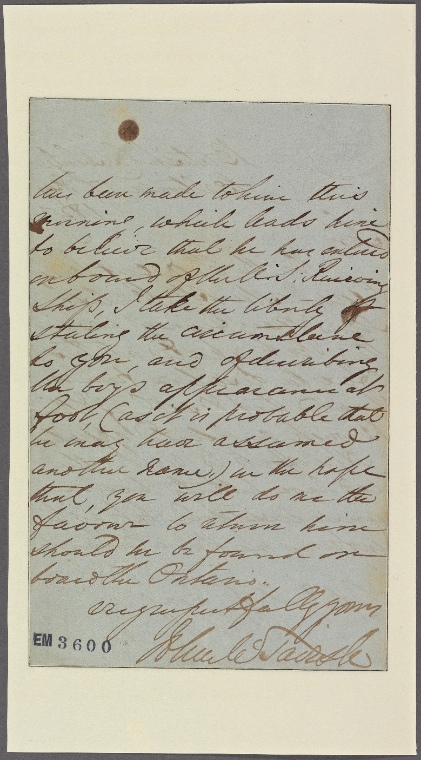 has been made to him this
morning, which leads him
to believe that he has entered
on board of the U.S. Receiving
Ship, I take the liberty of
stating the circumstance
to you, and of describing
the boys appearance at
foot, (as it is probable that
he may have assumed
another name,) in the hope
that, you will do me the
favour to return him
should he be found on
board the Ontario..
very respectfully yours
John
EM 3600